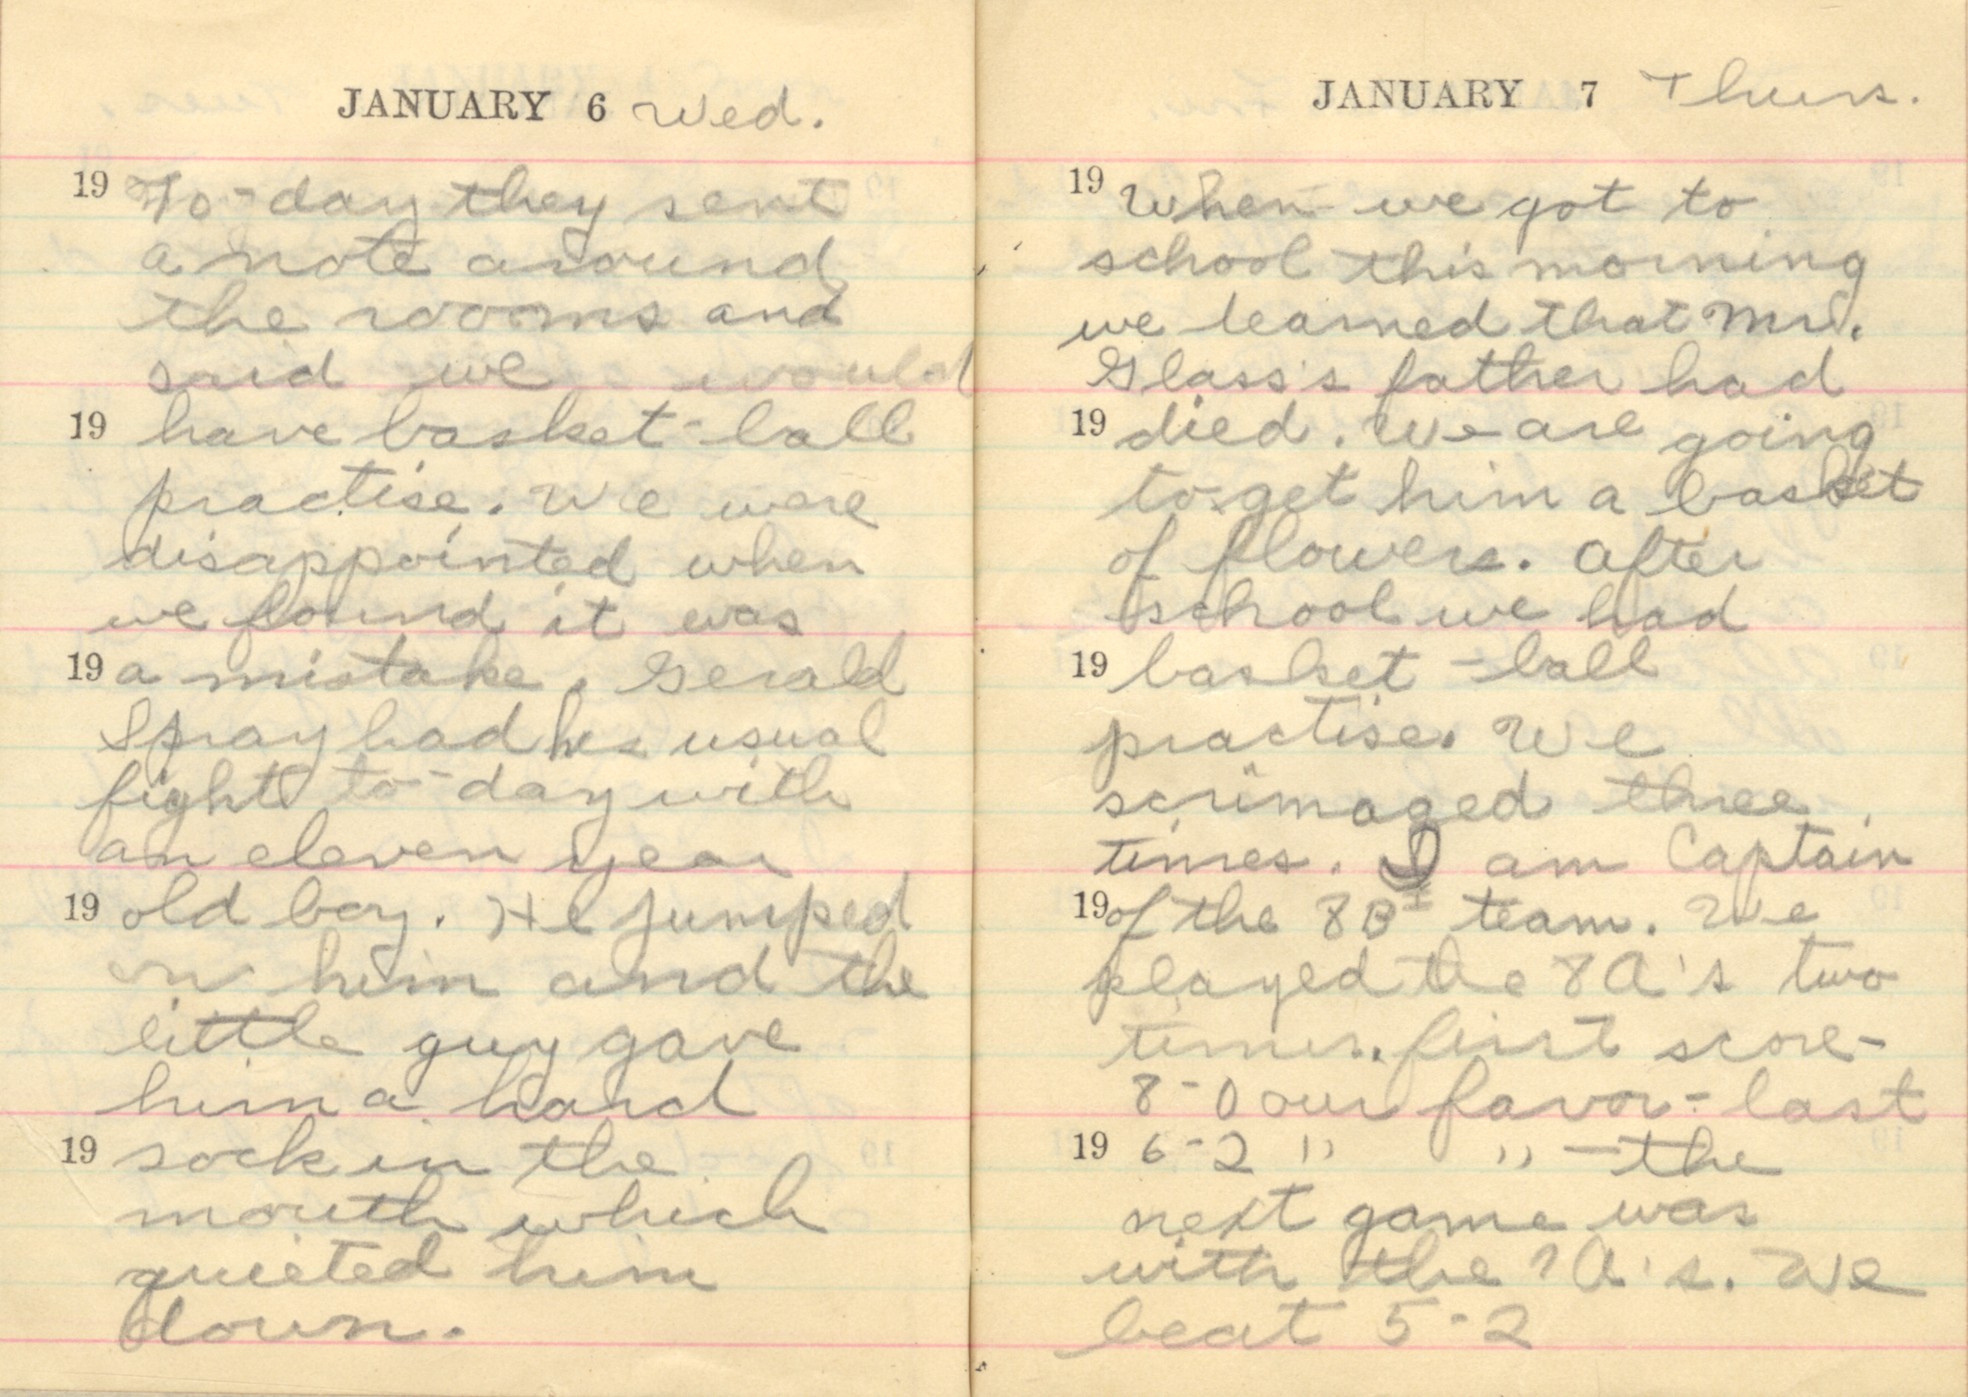 JANUARY 6 Wed.
19 To-day they sent
a note around
the rooms and
said we would
19 have basket-ball
practise. We were
disappointed when
we found it was
19 a mistake. Gerald
Spray had his usual
fight to-day with
an eleven year
19 old boy. He jumped
on him and the
little guy gave
him a hard
19 sock in the
mouth which
quieted him
down.
JANUARY 7 Thurs.
19 When we got to
school this morning
we learned that Mr.
Glass's father had
19 died. We are going
to get him a basket
of flowers. After
school we had
19 basket-ball
practise. We
scrimaged three
times. I am Captain
19 of the 8B I team. We
played the 8A's two
times. first score-
8-0 our favor-last
19 6-2 " " - the
next game was
with the 7A's. We
beat 5-2